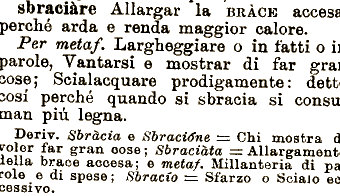 sbraciàre Allargar la BRÀCE accesa
perché arda e renda maggior calore.
Per metaf. Largheggiare o in fatti o in
parole, Vantarsi e mostrar di far gran
cose; Scialacquare prodigamente: dett
cosí perché quando si sbracia si consu
man più legna.
Deriv. Sbràcia e Sbracióne = Chi mostra d
voler far gran cose; Sbraciàta = Allargament
della brace accesa; e metaf. Millanteria di pa
role e di spese; Sbracío = Sfarzo o Scialo ec
cessivo.